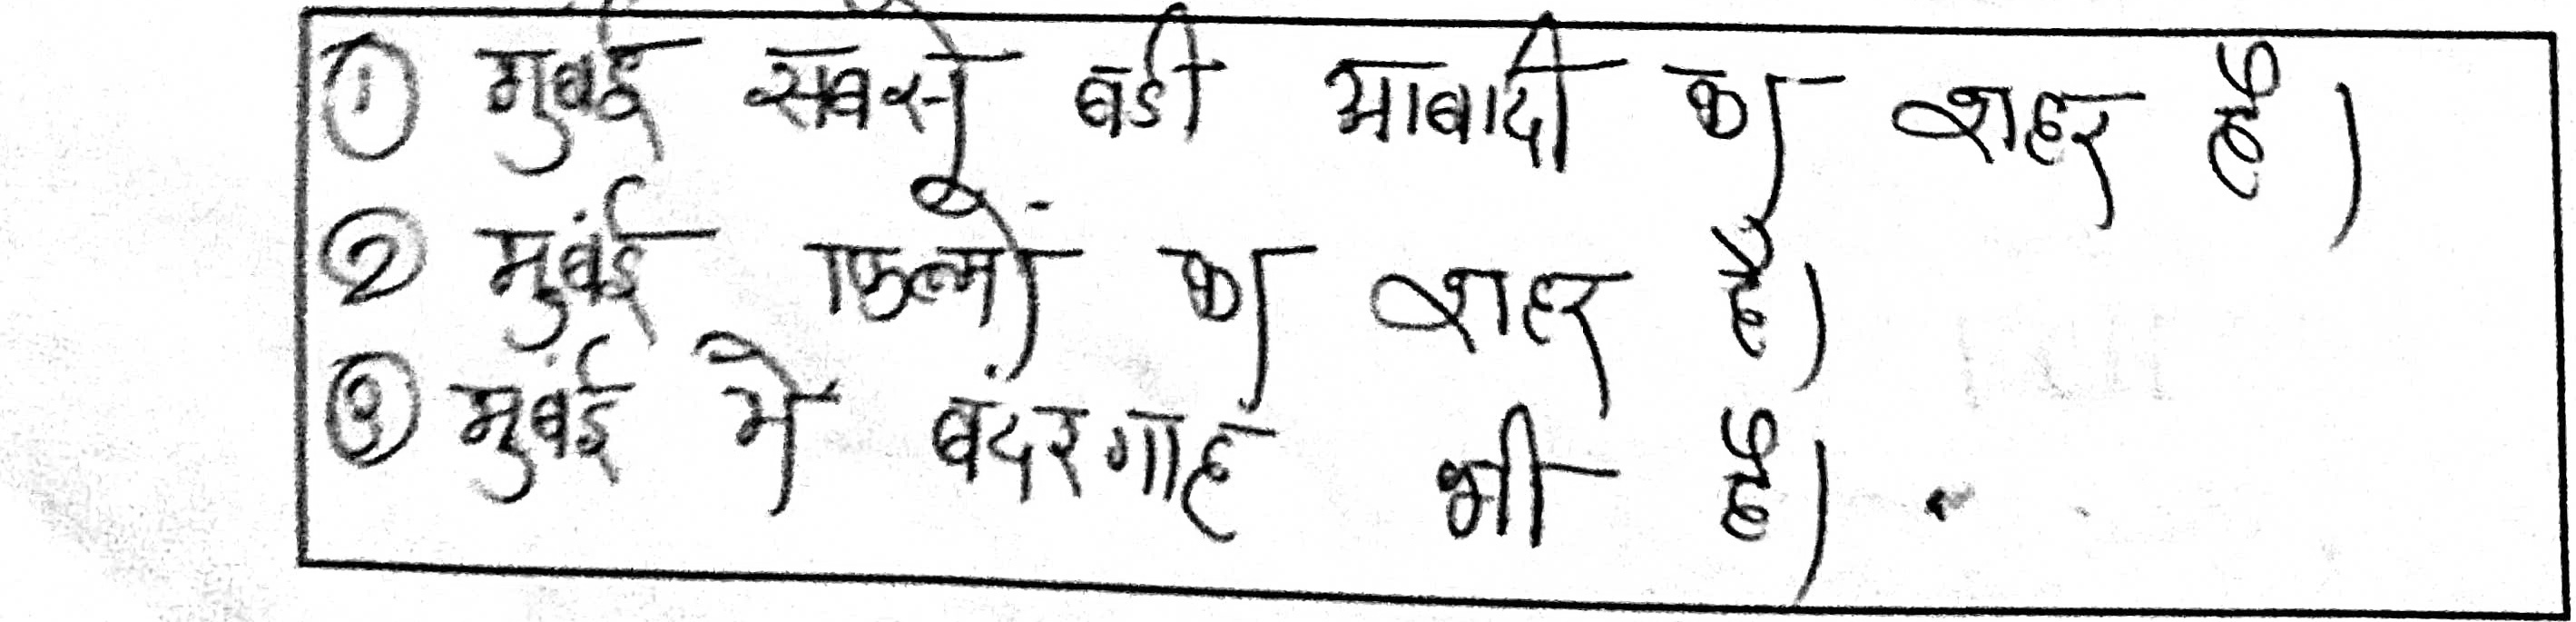 ① मुबई सबसे बडी आबादी का शहर है।
② मुबंई फिल्मों का शहर है।
③ मुबंई मे बंदरगाह भी है।